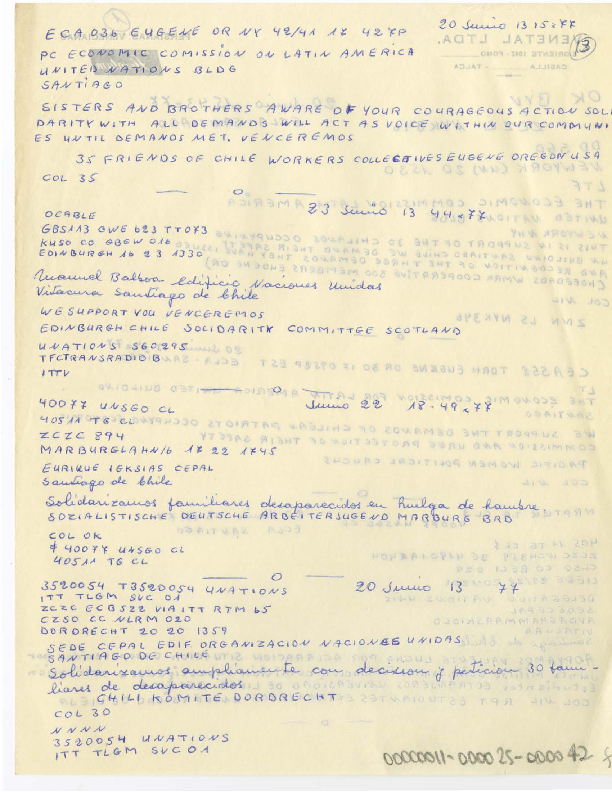 20 Junio 13 15 x 77
ECA 036 EUGENE OR NY 42/41 17 427P
13
PC ECONOMIC COMISSION ON LATIN AMERICA
UNITED NATIONS BLDG
SANTIAGO
SISTERS AND BROTHERS AWARE OF YOUR COURAGEOUS ACTION SOLI
DARITY WITH ALL DEMANDS WILL ACT AS VOICE WITHIN OUR COMMUNI
ES UNTIL DEMANDS MET. VENCEREMOS
35 FRIENDS OF CHILE WORKERS COLLECTIVES EUGENE OREGON USA
COL 35
— O —
23 Junio 13 44 x 77
OCABLE
GBS113 GWE 623 TT073
KUSO CO GBEW 016
EDINBURGH 16 23 1330
Manuel Balboa Edificio Naciones Unidas
Vitacura Santiago de Chile
WE SUPPORT YOU VENCEREMOS
EDINBURGH CHILE SOLIDARITY COMMITTGE SCOTLAND
UNATIONS SGO295
TFCTRANSRADIO B
ITTV
— O —
40077 UNSGO CL Junio 22 18.49 x 77
40511 TG CL
ZCZC 894
MARBURGLAHN/6 17 22 1745
EURIQUE IGKSIAS CEPAL
Santiago de Chile
Solidarizamos familiares desaparecidos en huelga de hambre
SOZIALISTISCHE DEUTSCHE ARBEITERJUGEND MARBURG BRD
COL OK
$ 40077 UNSGO CL
40511 TG CL
— O —
3520054 T3520054 UNATIONS 20 Junio 13 77
ITT TLGM SVC 01
ZCZC ECB522 VIA ITT RTM 65
CZSO CC NLRM 020
DORDRECHT 20 20 1359
SEDE CEPAL EDIF ORGANIZACION NACIONES UNIDAS
SANTIAGO DE CHILE
Solidarizamos ampliamente con decision y peticion 30 fami-
liares de desaparecidos
CHILI KOMITE DORDRECHT
COL 30
NNNN
3520054 UNATIONS
ITT TLGM SVC01
00000011-0000 25-0000 42